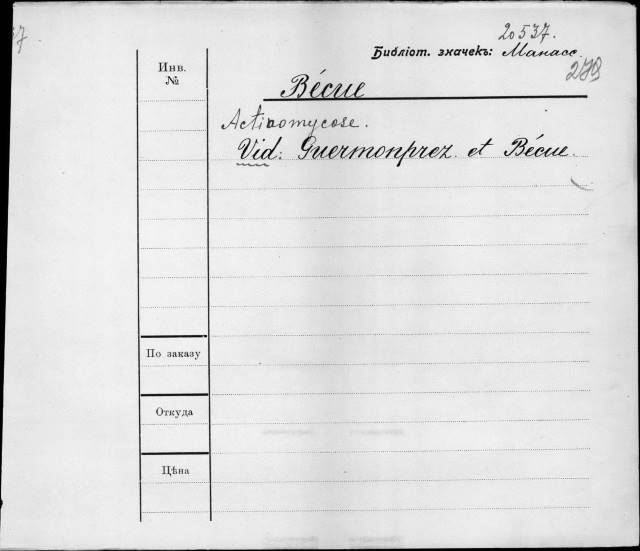 20537.
Библіот. значекъ: Манасс.
279
Инв.
№
Bécue
Actinomycose.
Vid: Guermonprez et Bécue.
По заказу
Откуда
Цѣна